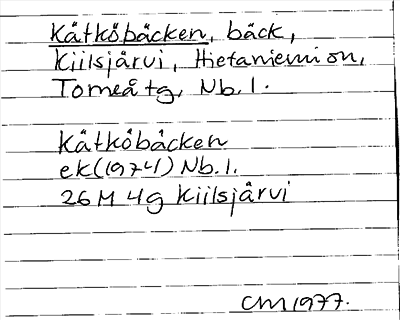 Kätköbäcken, bäck,
Kiilsjärvi, Hietaniemi sn,
Torneå tg, Nb. l.
Kätköbäcken
ek (1974) Nb. l.
26 M 4g Kiilsjärvi
CM 1977.